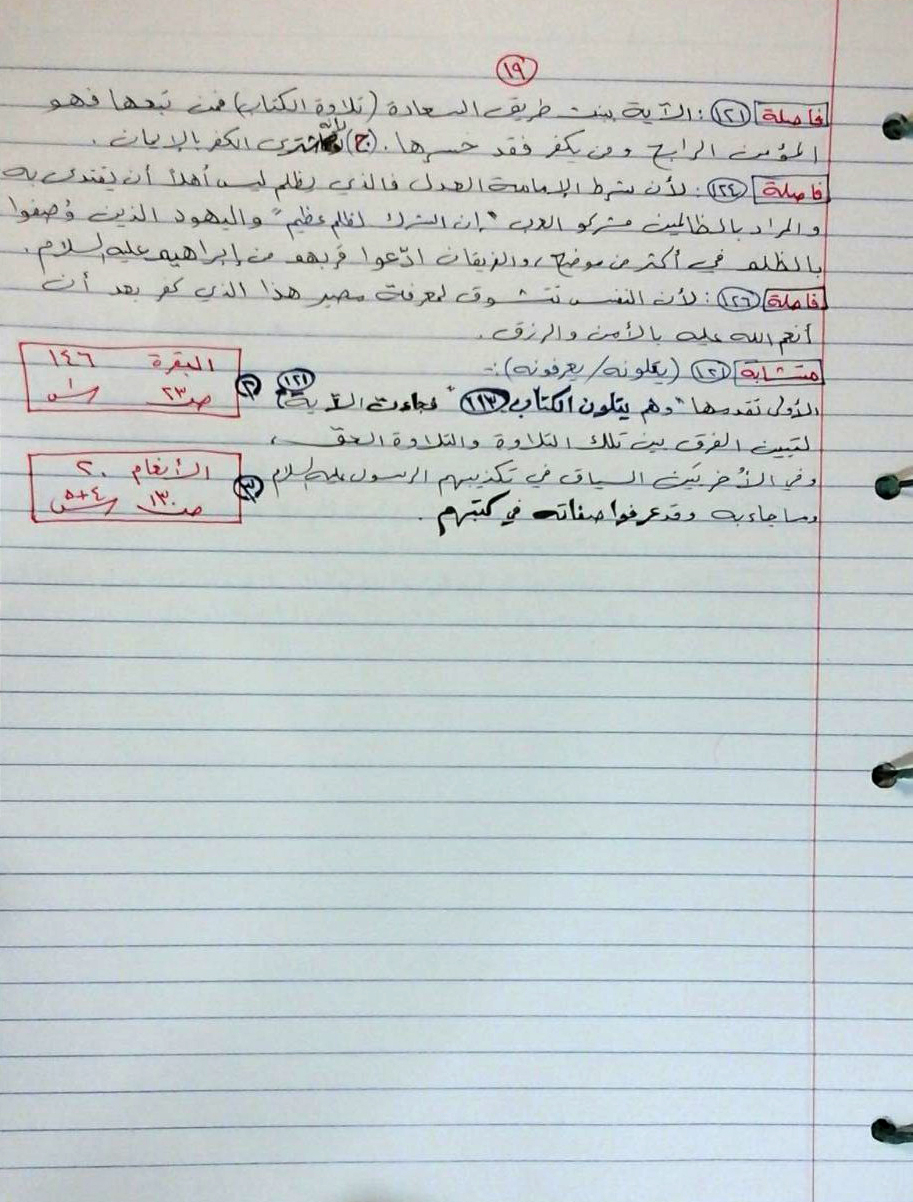 ١٩
فاصلة (١٢١): الآية بينت طريق السعادة (تلاوة الكتاب) فمن تبعها فهو
المؤمن الرابح ومن يكفر فقد خسرها. (ج) اشترى الكفر بالإيمان.
فاصلة (١٢٤): لأن شرط الإمامة العدل فالذي يظلم ليس أهلاً أن يقتدى به
والمراد بالظالمين مشركو العرب "إن الشرك لظلم عظيم" واليهود الذين وُصفوا
بالظلم في أكثر من موضع، والفريقان ادّعوا قربهم من إبراهيم عليه السلام.
فاصلة (١٢٦): لأن النفس تتشوق لمعرفة مصير هذا الذي كفر بعد أن
أنعم الله عليه بالأمن والرزق.
متشابة (١٢١) (يتلونه/يعرفونه):-
الأولى تقدمها "وهم يتلون الكتاب (١١٣)" فجاءت الآية (١٢١)
لتبين الفرق بين تلك التلاوة والتلاوة الحق،
وفي الأُخريَين السياق في تكذيبهم الرسول عليه السلام
وما جاء به وقد عرفوا صفاته في كتبهم.
(٢) البقرة ١٤٦
صـ ٢٣ سـ ١
(٣) الأنعام ٢٠
صـ ١٣٠ سـ ٤+٥